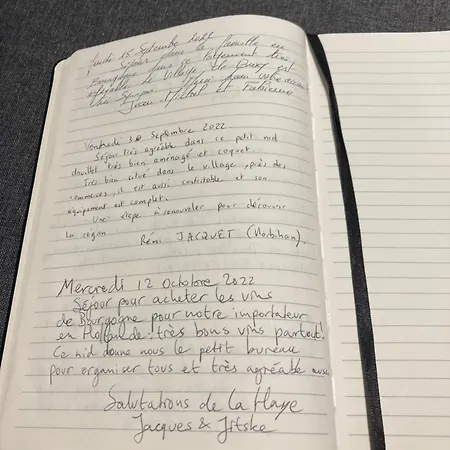 Jeudi 15 Septembre 2022
Séjour dans la famille en
Bourgogne dans ce logement très
agréable. Le village de Buxy est
très sympa. Merci pour votre accueil
Jean Michel et Fabienne
Vendredi 30 Septembre 2022
Séjour très agréable dans ce petit nid
douillet très bien aménagé et coquet.
Très bien situé dans le village, près des
commerces, il est aussi confortable et son
équipement est complet.
Une étape à renouveler pour découvrir
la région
Rémi JACQUET (Morbihan).
Mercredi 12 Octobre 2022
Séjour pour acheter les vins
de Bourgogne pour notre importateur
en Hollande: très bons vins partout!
Ce nid donne nous le petit bureau
pour organiser tous et très agréable aussi
Salutations de La Haye
Jacques & Jitske